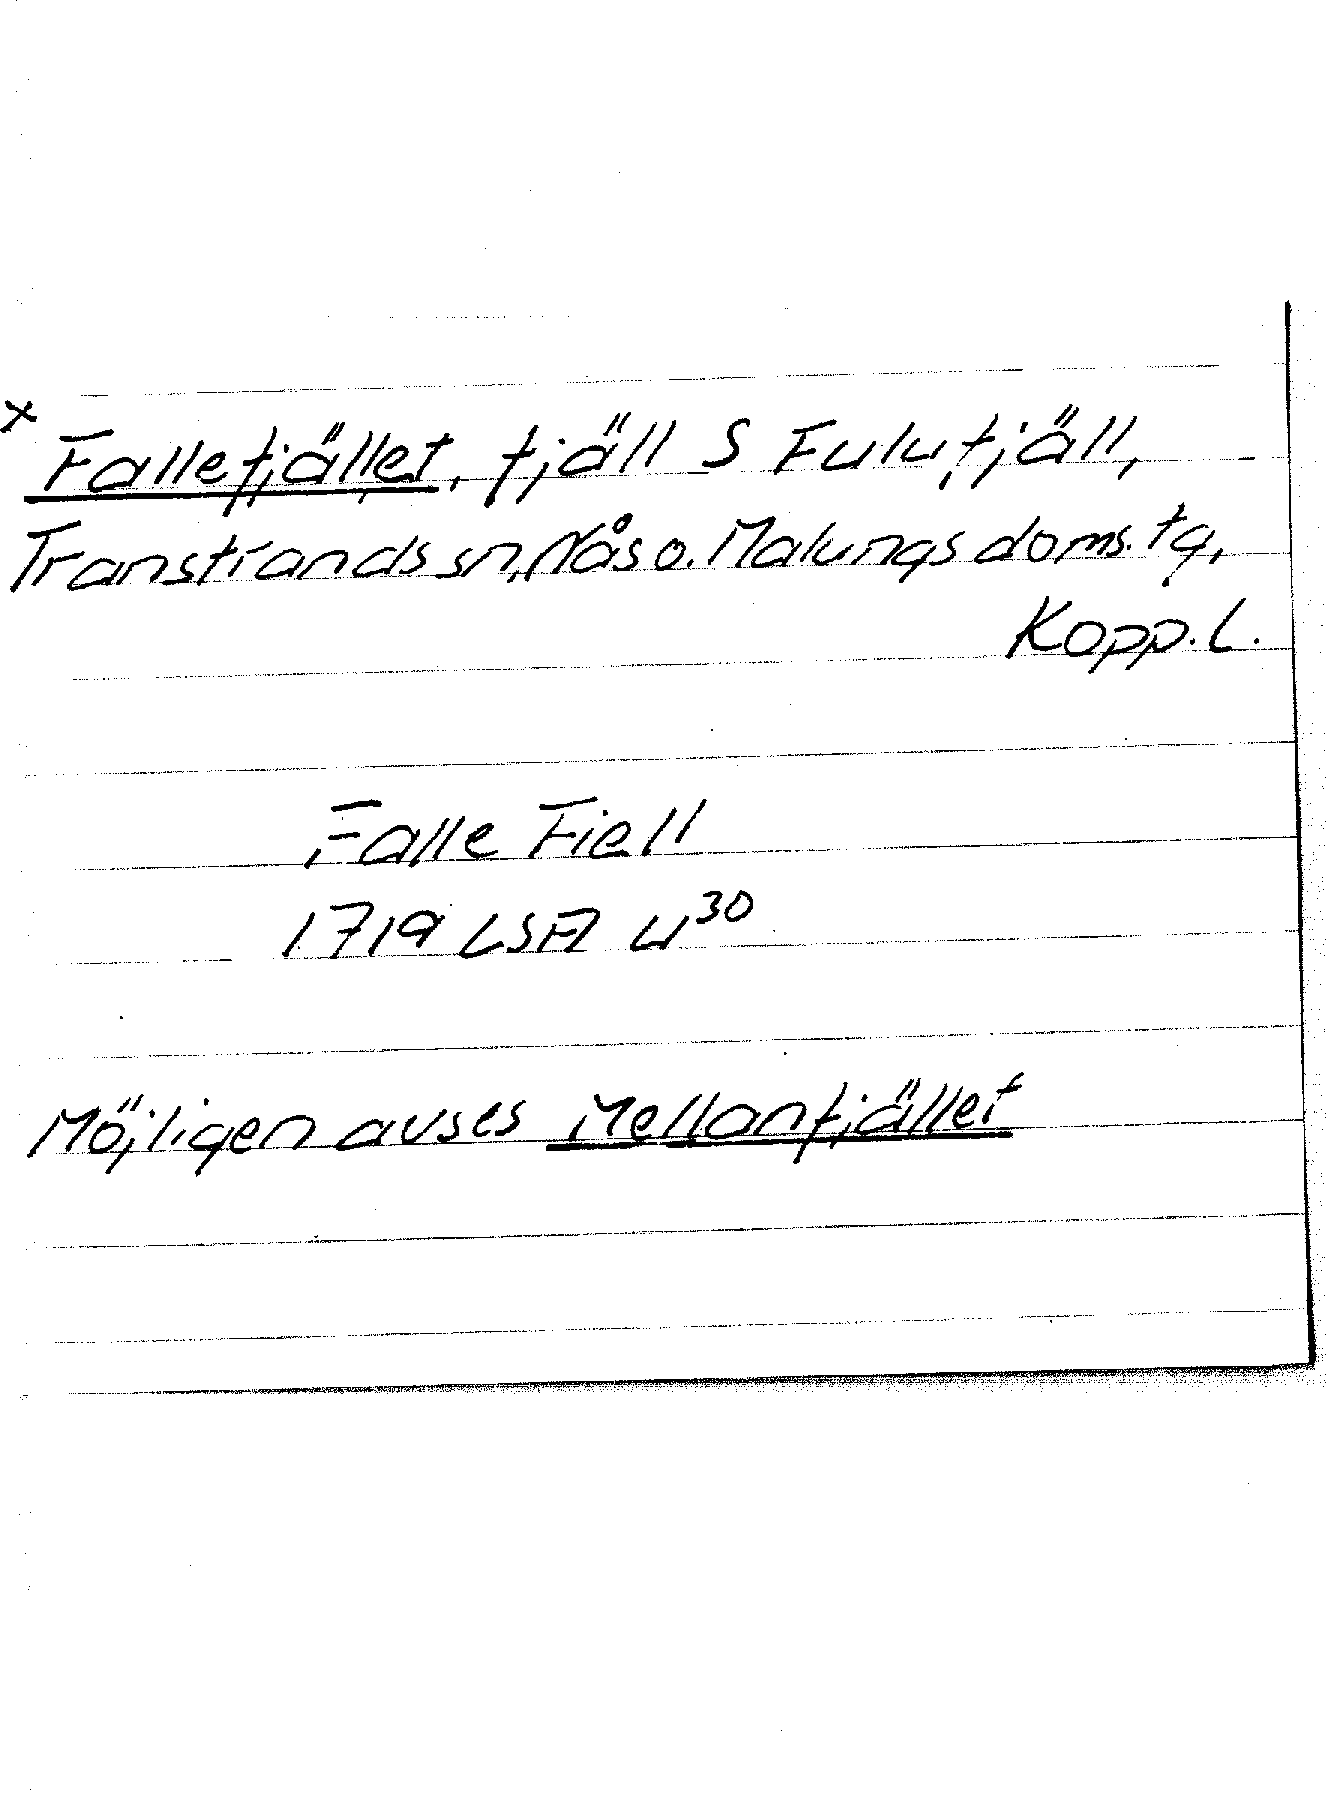 x Fallefjället, fjäll S Fulufjäll,
Transtrands sn, Nås o. Malungs doms. tg,
Kopp. L.
Falle Fiell
1719 LSA W³⁰
Möjligen avses Mellanfjället